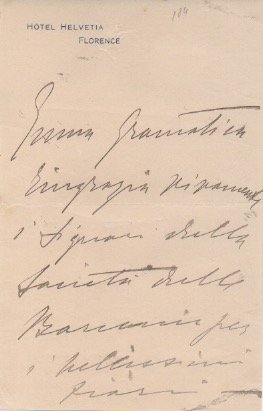 184
HOTEL HELVETIA
FLORENCE
Emma Gramatica
ringrazia vivamente
i Signori della
Società delle
per
i bellissimi
fiori —